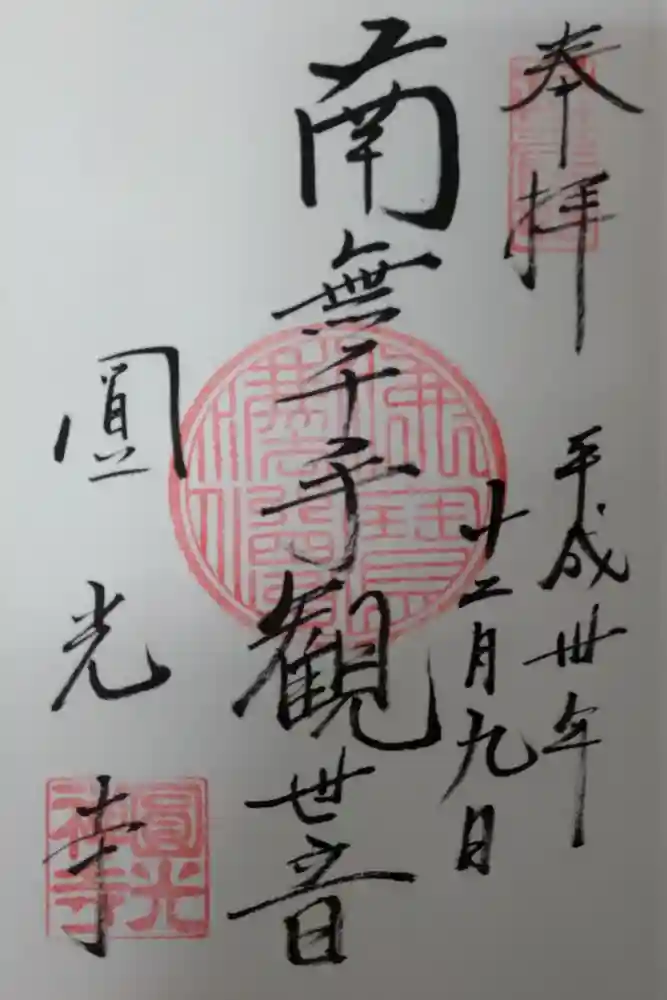 奉拝
平成卅年
十二月九日
南無千手観世音
圓光寺
圓光禅寺